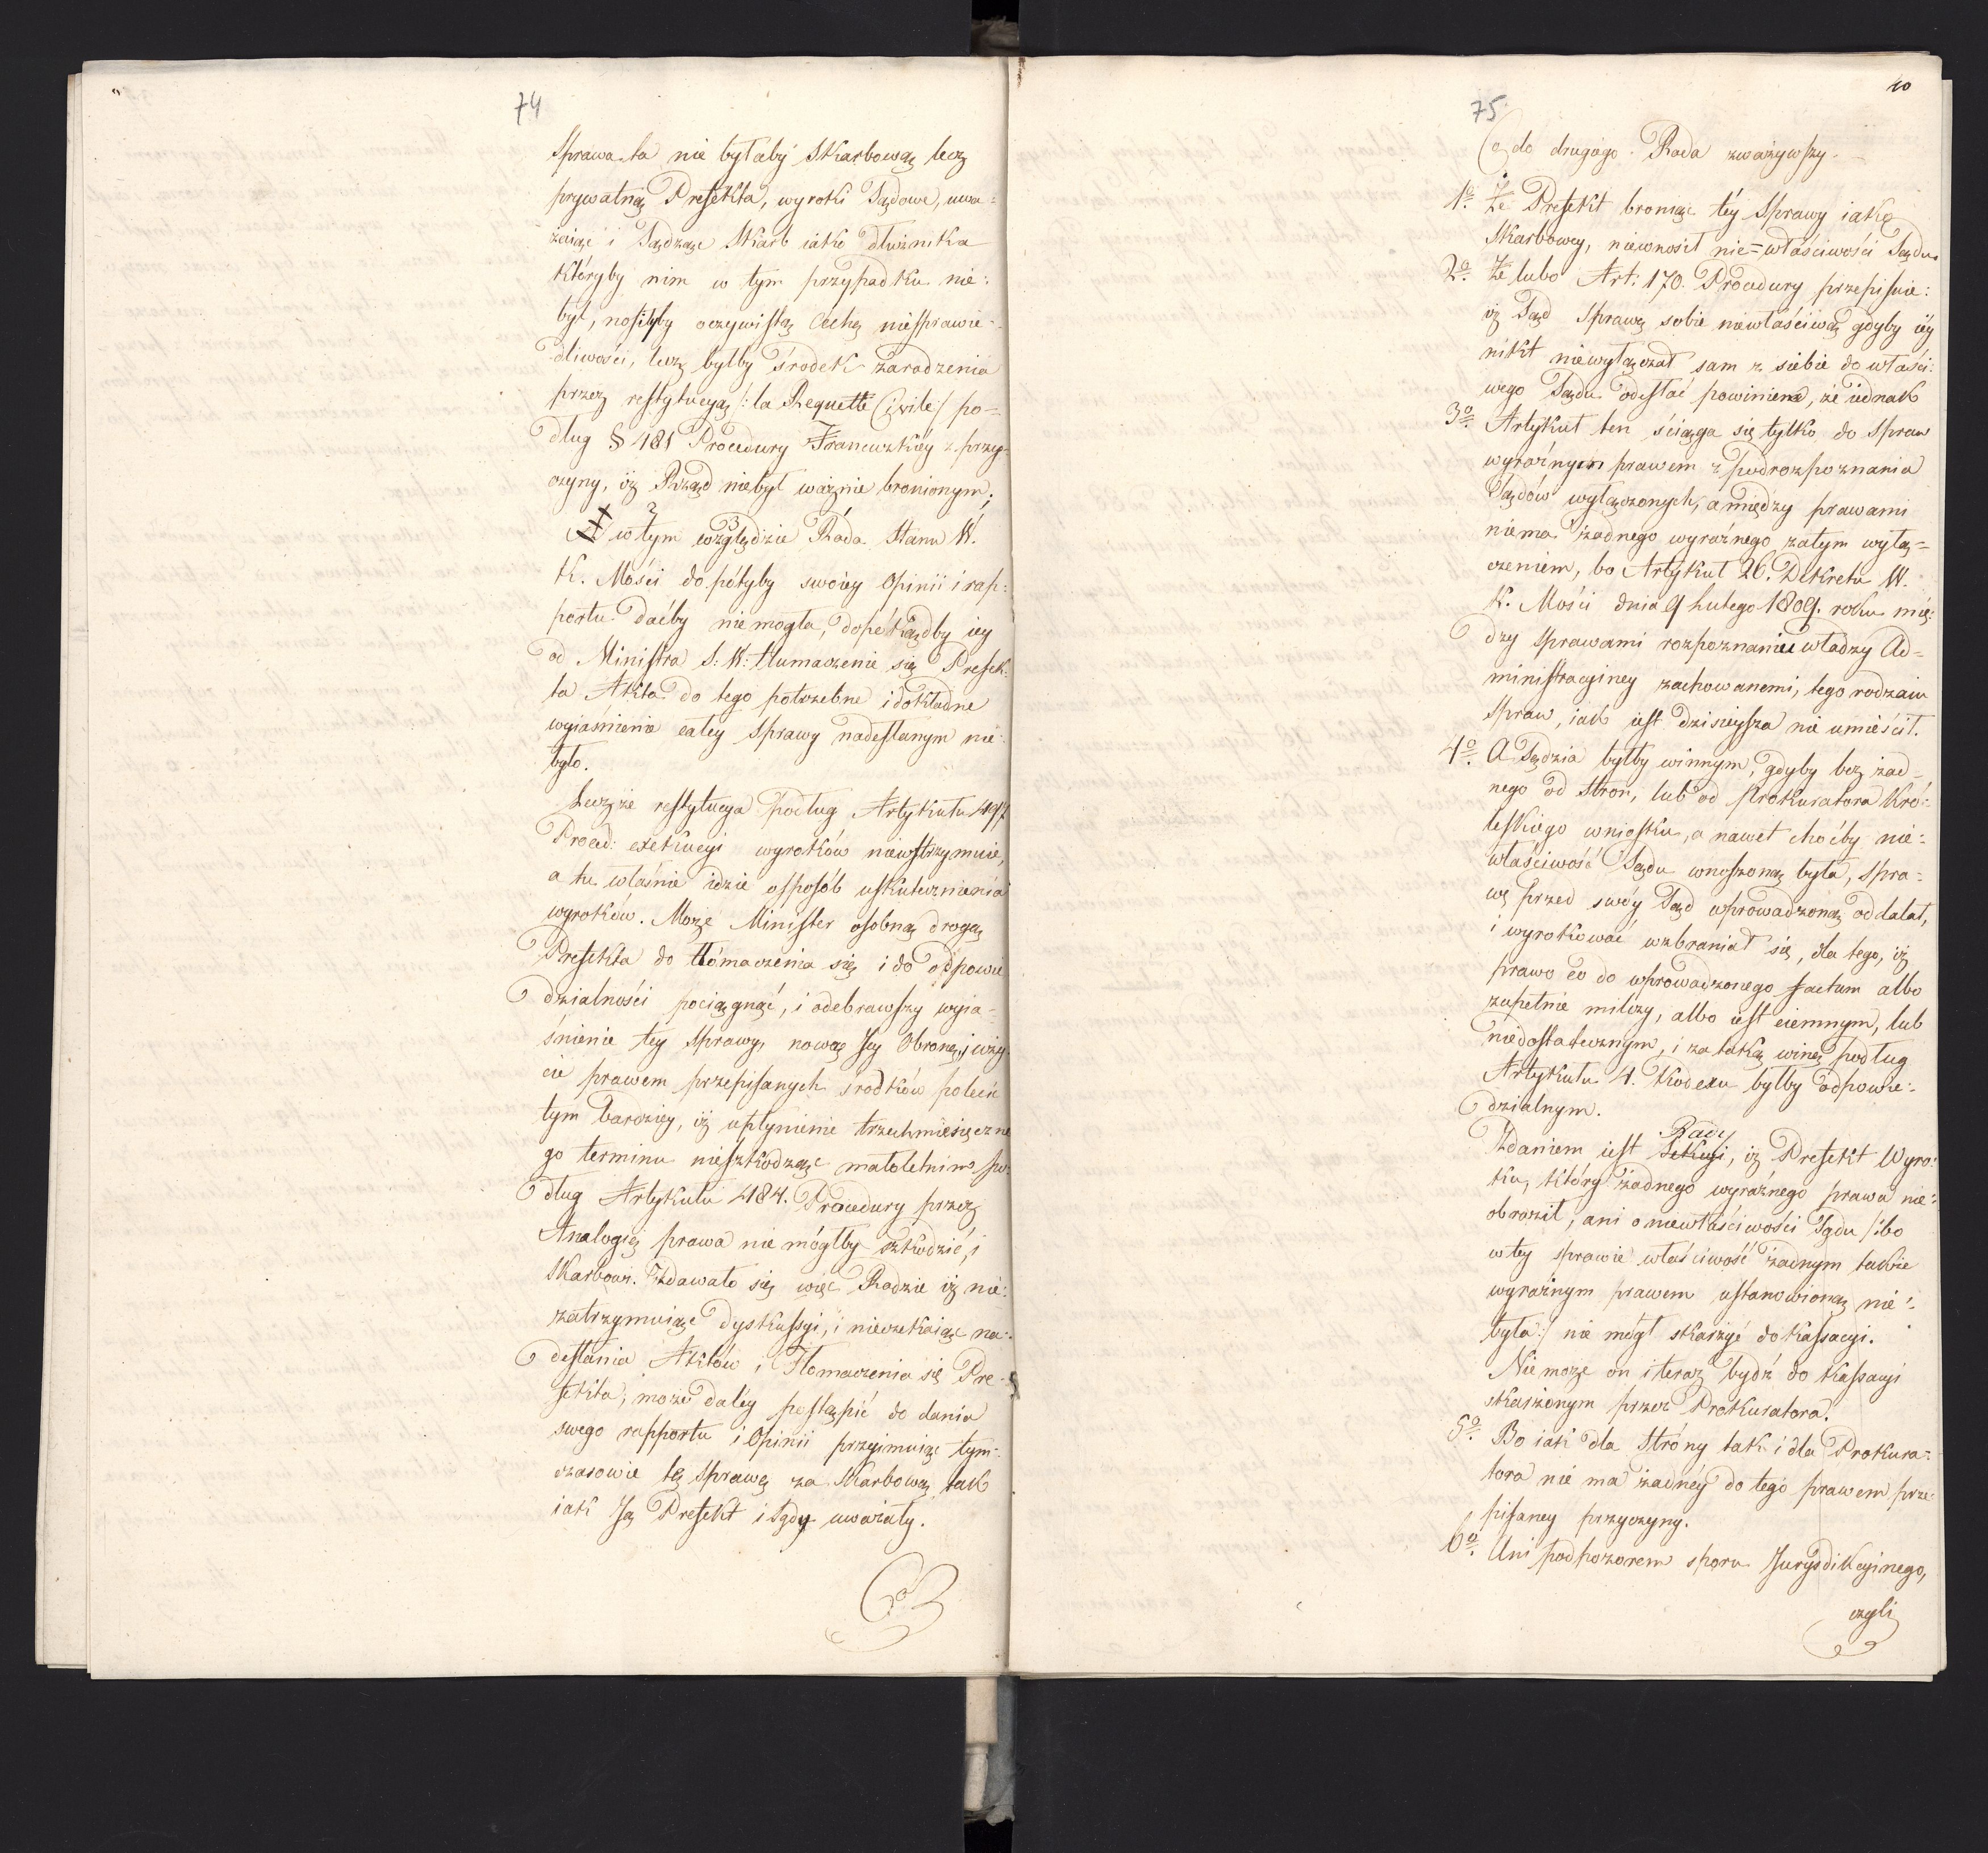 74
Sprawa ta nie byłaby Skarbową lecz
prywatną Prefekta, wyroki Sądowe, uwa=
żaiąc i Sądząc Skarb iako dłużnika
któryby nim w tym przypadku nie=
był, nosiłyby oczywistą Cechę niesprawie=
dliwości, lecz byłby środek zaradzenia
przez restytucyą /: la Requette Civile :/ po=
dług § 481 Procedury Francuzkiey z przy=
czyny, iż Rząd niebył ważnie bronionym;
w tym względzie Rada Stanu W.
K. Mości dopótyby swoiey Opinii i rap=
portu daćby nie mogła, dopókądby iey
od Ministra S: W: tłumaczenie się Prefek=
ta Akta do tego potrzebne i dokładne
wyiaśnienie całey Sprawy nadesłanym nie=
było.
Lecz że restytucya podług Artykułu 497
Proced: exekucyi wyroków niewstrzymuie,
a tu właśnie idzie o sposób uskutecznienia
wyroków. Może Minister osobną drogą
Prefekta do tłómaczenia się i do odpowie
dzialności pociągnąć, i odebrawszy wyia=
śnienie tey Sprawy, nową Jey Obronę, i uży
cie prawem przepisanych srodków polecić
tym bardziey, iż upłynienie trzechmiesięczne
go terminu nieszkodząc małoletnim po=
dług Artykułu 484. Procedury przez
Analogią prawa nie mógłby szkodzić, i
Skarbowi. Zdawało się więc Radzie iż nie=
zatrzymuiąc dyskussyi, i nieczekaiąc na=
desłania Aktów, i Tłomaczenia się Pre=
fekta, może daley postąpić do dania
swego rapportu i Opinii przyimuiąc tym=
czasowie tę Sprawę za Skarbową, tak
iak Ją Prefekt i Sądy uważały.
Co
10
75
Co do drugiego. Rada zważywszy.
1o. Że Prefekt broniąc téy Sprawy iako
Skarbowey, niewnosił nie=właściwości Sądu.
2o. Że lubo Art: 170. Procedury przepisuie:
iż Sąd Sprawę sobie niewłaściwą gdyby iéy
nikt niewyłączał sam z siebie do właści=
wego Sądu odesłać powinien, że iednak
3o. Artykuł ten ściąga się tylko do Spraw
wyraźnym prawem z pod rozpoznania
Sądów wyłączonych, a między prawami
niema żadnego wyraźnego zatym wyłą=
czeniem, bo Artykuł 26. Dekretu W.
K. Mości dnia 9 Lutego 1809. roku mię=
dzy sprawami rozpoznaniu władzy Ad=
ministracyiney zachowanemi, tego rodzaiu
Spraw, iak iest dzisieysza nie umieścił.
4o. A Sędzia byłby winnym, gdyby bez żad=
nego od Stron, lub od Prokuratora Kró=
leskiego wniosku, a nawet choćby nie=
właściwość Sądu wnoszoną była, Spra=
wę przed swóy Sąd wprowadzoną oddalał,
i wyrokować wzbraniał się, dla tego, iż
prawo co do wprowadzonego factum albo
zupełnie milczy, albo iest ciemnym, lub
niedostatecznym, i za taką winę podług
Artykułu 4. Kodexu byłby odpowie=
dzialnym.
Rady
Zdaniem iest Sekcyi, iż Prefekt Wyro=
ku, który żadnego wyraźnego prawa nie=
obraził, ani o niewłaściwości Sądu /: bo
w tey sprawie właściwość żadnym takie
wyraźnym prawem ustanowioną nie=
była :/ nie mógł skarżyć do Kassacyi.
Nie może on i teraz bydź do Kassacyi
skarżonym przez Prokuratora.
5o. Bo iak dla Stróny tak i dla Prokura=
tora nie ma żadnéy do tego prawem prze=
pisaney przyczyny.
6o. Ani pod pozorem sporu Jurysdikcyinego,
czyli